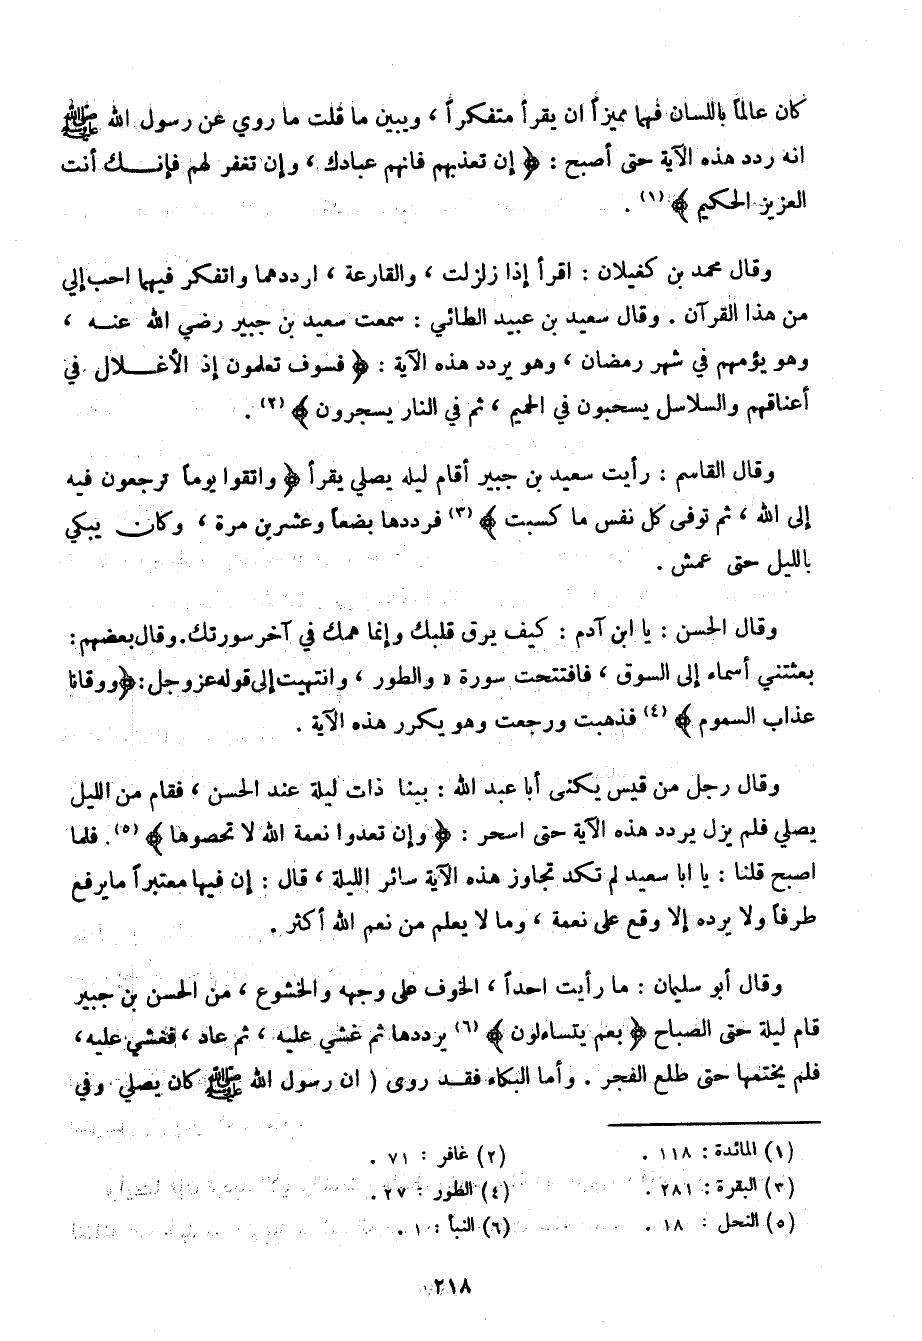 كان عالماً باللسان فهما مميزاً ان يقرأ متفكراً ، ويبين ما قلت ما روي عن رسول الله ﷺ
انه ردد هذه الآية حتى أصبح : ﴿ إن تعذبهم فانهم عبادك ، وإن تغفر لهم فإنك أنت
العزيز الحكيم ﴾ (١) .
وقال محمد بن كفيلان : اقرأ إذا زلزلت ، والقارعة ، ارددهما واتفكر فيهما احب إلي
من هذا القرآن . وقال سعيد بن عبيد الطائي : سمعت سعيد بن جبير رضي الله عنه ،
وهو يؤمهم في شهر رمضان ، وهو يردد هذه الآية : ﴿ فسوف تعلمون إذ الأغلال في
أعناقهم والسلاسل يسحبون في الحميم ، ثم في النار يسجرون ﴾ (٢) .
وقال القاسم : رأيت سعيد بن جبير أقام ليله يصلي يقرأ ﴿ واتقوا يوماً ترجعون فيه
إلى الله ، ثم توفى كل نفس ما كسبت ﴾ (٣) فرددها بضعاً وعشرين مرة ، وكان يبكي
بالليل حتى عمش .
وقال الحسن : يا ابن آدم : كيف يرق قلبك وإنما همك في آخر سورتك. وقال بعضهم :
بعثتني أسماء إلى السوق ، فافتتحت سورة « والطور ، وانتهيت إلى قوله عز وجل : ﴿ ووقانا
عذاب السموم ﴾ (٤) فذهبت ورجعت وهو يكرر هذه الآية .
وقال رجل من قيس يكنى أبا عبد الله : بينا ذات ليلة عند الحسن ، فقام من الليل
يصلي فلم يزل يردد هذه الآية حتى اسحر : ﴿ وإن تعدوا نعمة الله لا تحصوها ﴾ (٥) . فلما
اصبح قلنا : يا ابا سعيد لم تكد تجاوز هذه الآية سائر الليلة ، قال : إن فيها معتبراً ما يرفع
طرفاً ولا يرده إلا وقع على نعمة ، وما لا يعلم من نعم الله أكثر .
وقال أبو سليمان : ما رأيت احداً ، الخوف على وجهه والخشوع ، من الحسن بن جبير
قام ليلة حتى الصباح ﴿ بعم يتساءلون ﴾ (٦) يرددها ثم غشي عليه ، ثم عاد ، فغشي عليه ،
فلم يختمها حتى طلع الفجر . وأما البكاء فقد روى ( ان رسول الله ﷺ كان يصلي وفي
(١) المائدة : ١١٨ . (٢) غافر : ٧١ .
(٣) البقرة : ٢٨١ . (٤) الطور : ٢٧ .
(٥) النحل : ١٨ . (٦) النبأ : ١ .
٢١٨